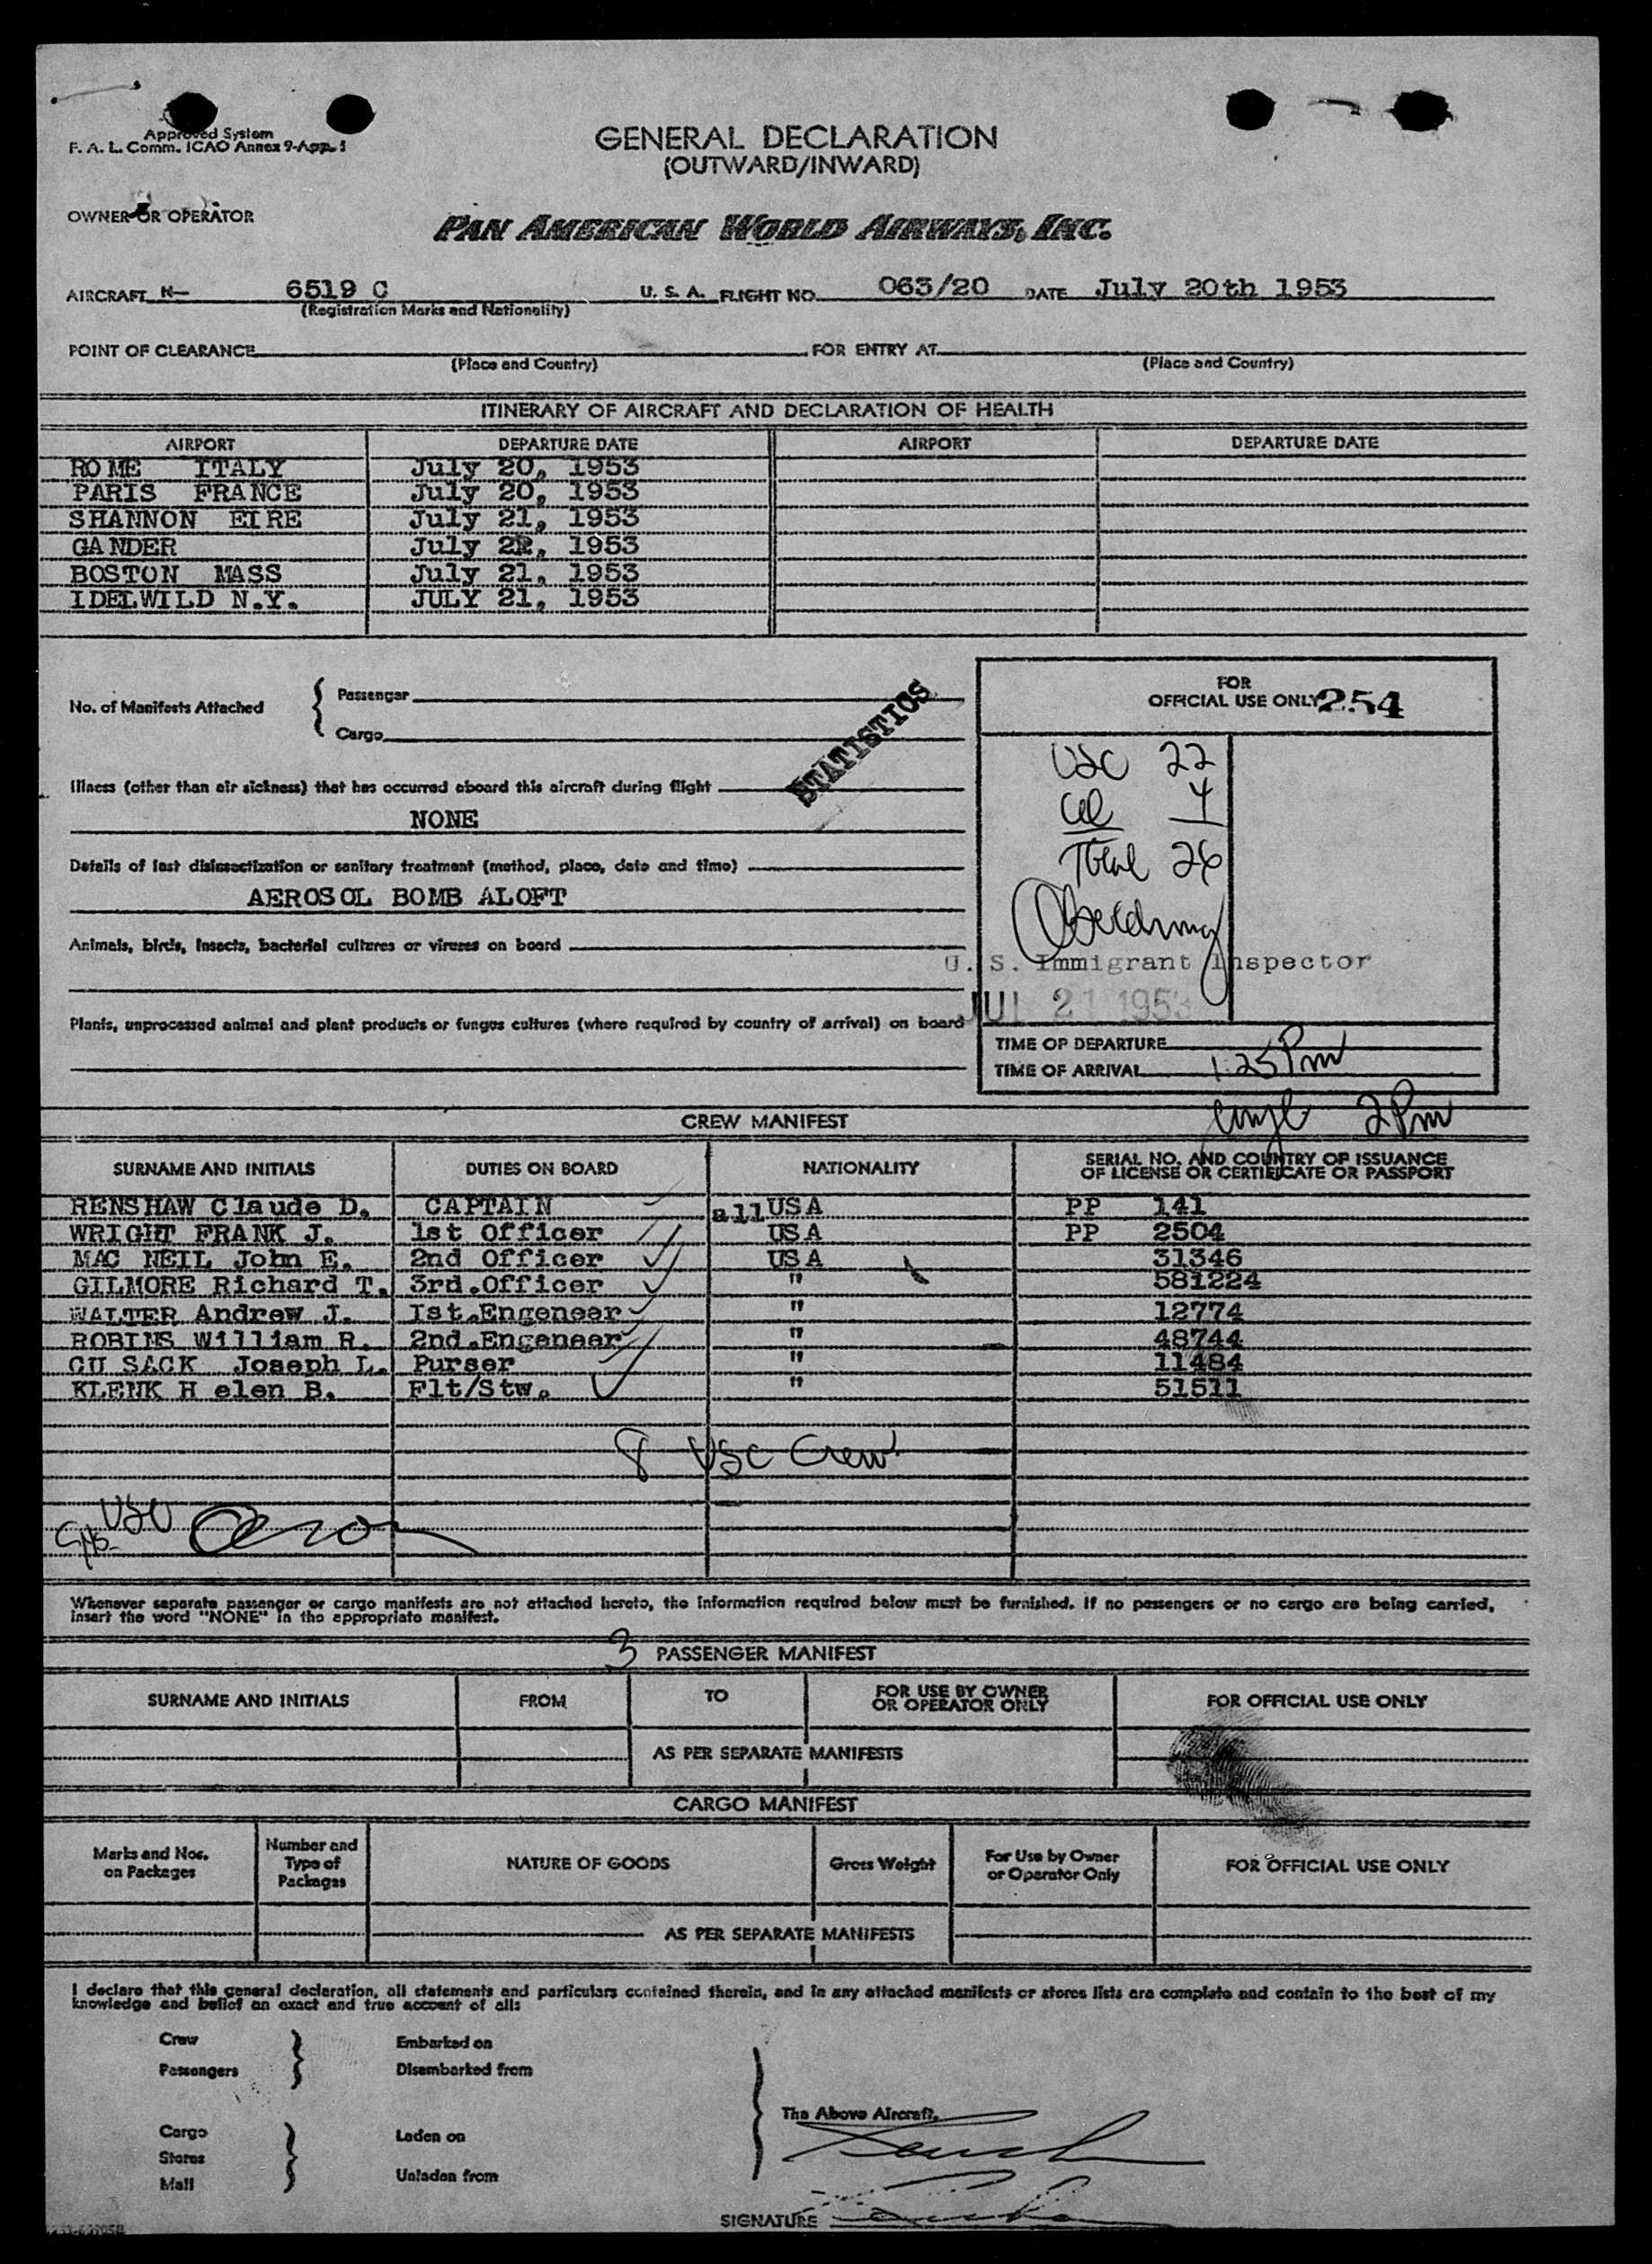 Approved System
F. A. L. Comm. ICAO Annex 9-App. 1
GENERAL DECLARATION
(OUTWARD/INWARD)
OWNER OR OPERATOR
PAN AMERICAN WORLD AIRWAYS, INC.
AIRCRAFT N- 6519 C U. S. A. FLIGHT NO. 063/20 DATE July 20th 1953
(Registration Marks and Nationality)
POINT OF CLEARANCE FOR ENTRY AT
(Place and Country) (Place and Country)
ITINERARY OF AIRCRAFT AND DECLARATION OF HEALTH
AIRPORT DEPARTURE DATE AIRPORT DEPARTURE DATE
ROME ITALY July 20, 1953
PARIS FRANCE July 20, 1953
SHANNON EIRE July 21, 1953
GANDER July 1953
BOSTON MASS July 21, 1953
IDELWILD N.Y. JULY 21, 1953
No. of Manifests Attached { Passenger
Cargo
STATISTICS
FOR
OFFICIAL USE ONLY 254
USC 22
4
Total 26
Illness (other than air sickness) that has occurred aboard this aircraft during flight
NONE
Details of last disinsectization or sanitary treatment (method, place, date and time)
AEROSOL BOMB ALOFT
Animals, birds, insects, bacterial cultures or viruses on board
U. S. Immigrant Inspector
JUL 21 1953
Plants, unprocessed animal and plant products or fungus cultures (where required by country of arrival) on board
TIME OF DEPARTURE
TIME OF ARRIVAL 1:25 Pm
2 Pm
CREW MANIFEST
SURNAME AND INITIALS DUTIES ON BOARD NATIONALITY SERIAL NO. AND COUNTRY OF ISSUANCE
OF LICENSE OR CERTIFICATE OR PASSPORT
RENSHAW Claude D. CAPTAIN all USA PP 141
WRIGHT FRANK J. 1st Officer USA PP 2504
MAC NEIL John E. 2nd Officer USA 31346
GILMORE Richard T. 3rd.Officer " 581224
WALTER Andrew J. Ist.Engeneer " 12774
ROBINS William R. 2nd.Engeneer " 48744
CU SACK Joseph L. Purser " 11484
KLENK H elen B. Flt/Stw. " 51511
8 USC Crew
USC
Whenever separate passenger or cargo manifests are not attached hereto, the information required below must be furnished. If no passengers or no cargo are being carried,
insert the word "NONE" in the appropriate manifest.
3 PASSENGER MANIFEST
SURNAME AND INITIALS FROM TO FOR USE BY OWNER
OR OPERATOR ONLY FOR OFFICIAL USE ONLY
AS PER SEPARATE MANIFESTS
CARGO MANIFEST
Marks and Nos.
on Packages
Number and
Type of
Packages
NATURE OF GOODS
Gross Weight
For Use by Owner
or Operator Only
FOR OFFICIAL USE ONLY
AS PER SEPARATE MANIFESTS
I declare that this general declaration, all statements and particulars contained therein, and in any attached manifests or stores lists are complete and contain to the best of my
knowledge and belief an exact and true account of all:
Crew } Embarked on
Passengers Disembarked from
The Above Aircraft.
Cargo Laden on
Stores
Mail } Unladen from
SIGNATURE